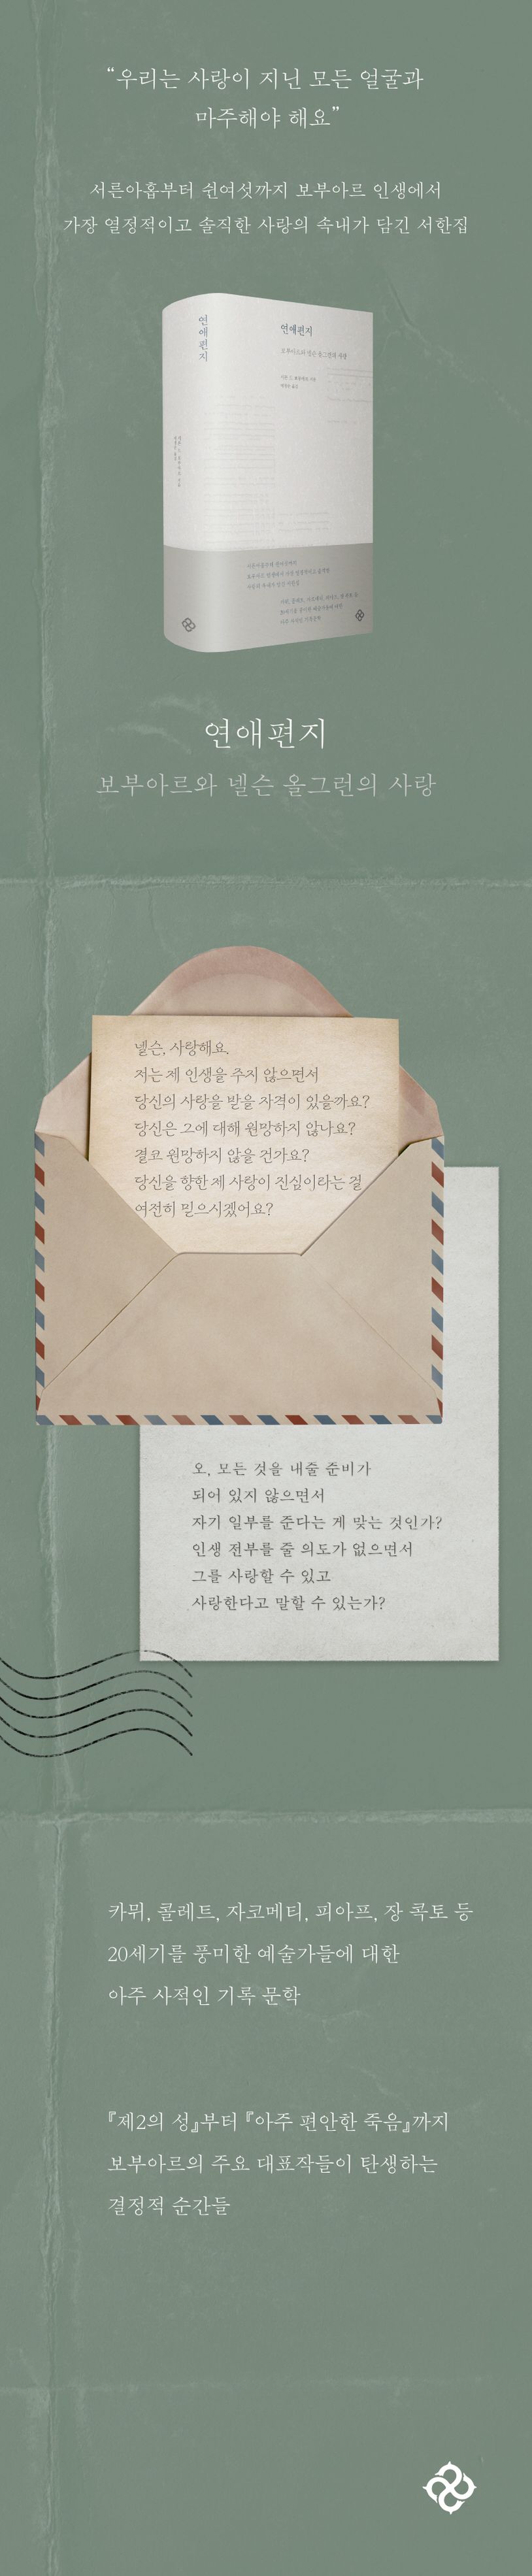 “우리는 사랑이 지닌 모든 얼굴과
마주해야 해요”
서른아홉부터 쉰여섯까지 보부아르 인생에서
가장 열정적이고 솔직한 사랑의 속내가 담긴 서한집
연애편지
연애편지
보부아르와 넬슨 올그런의 사랑
연애편지
보부아르와 넬슨 올그런의 사랑
넬슨, 사랑해요.
저는 제 인생을 주지 않으면서
당신의 사랑을 받을 자격이 있을까요?
당신은 그에 대해 원망하지 않나요?
결코 원망하지 않을 건가요?
당신을 향한 제 사랑이 진심이라는 걸
여전히 믿으시겠어요?
오, 모든 것을 내줄 준비가
되어 있지 않으면서
자기 일부를 준다는 게 맞는 것인가?
인생 전부를 줄 의도가 없으면서
그를 사랑할 수 있고
사랑한다고 말할 수 있는가?
카뮈, 콜레트, 자코메티, 피아프, 장 콕토 등
20세기를 풍미한 예술가들에 대한
아주 사적인 기록 문학
『제2의 성』부터 『아주 편안한 죽음』까지
보부아르의 주요 대표작들이 탄생하는
결정적 순간들